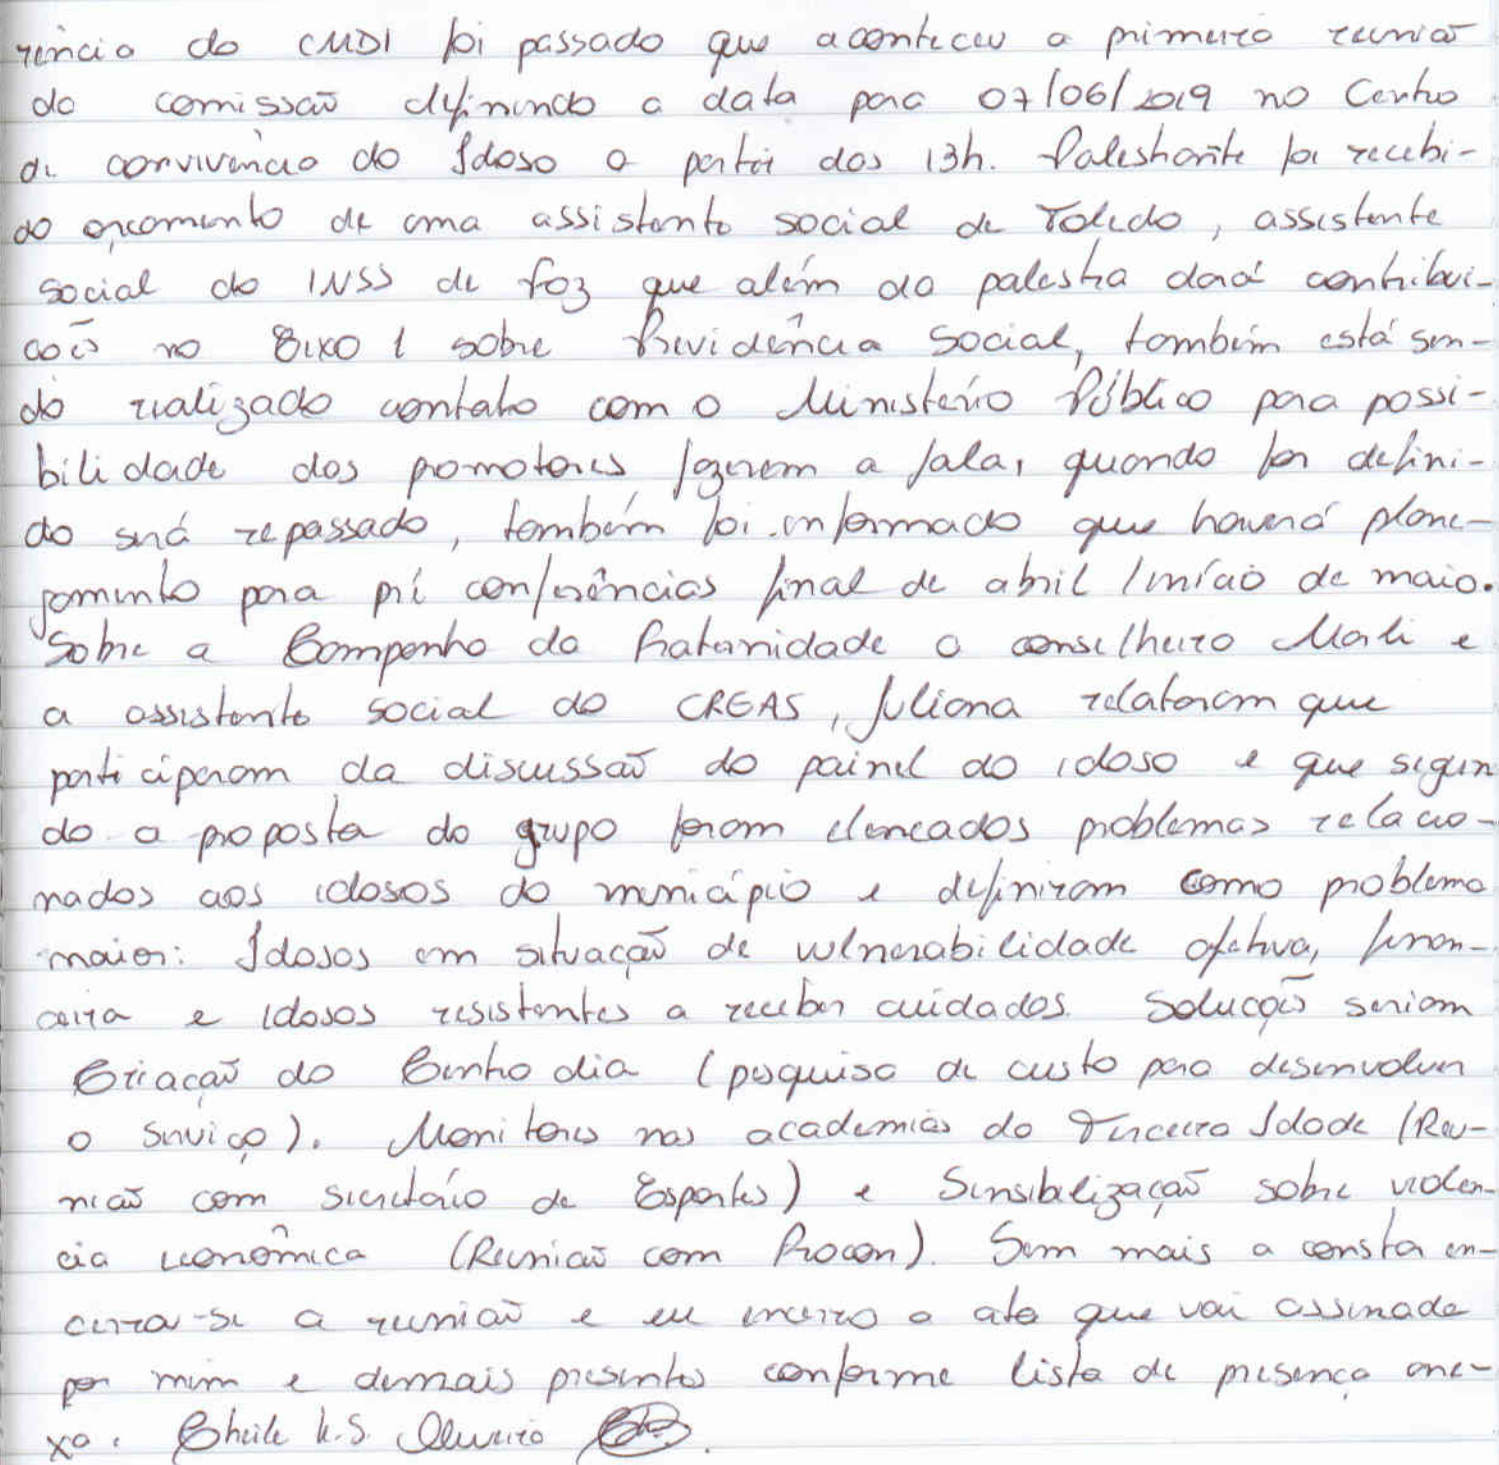 rência do CMDI foi passado que aconteceu a primeira reunião
da comissão definindo a data para 07/06/2019 no Centro
de convivência do Idoso a partir das 13h. Palestrante foi recebi-
do orçamento de uma assistente social de Toledo, assistente
social do INSS de Foz que além da palestra dará contribui-
ções no Eixo 1 sobre Previdência Social, também está sen-
do realizado contato com o Ministério Público para possi-
bilidade dos promotores fazerem a fala, quando for defini-
do será repassado, também foi informado que haverá plane-
jamento para pré conferências final de abril / início de maio.
Sobre a Campanha da Fraternidade a conselheira Marli e
a assistente social do CREAS, Juliana relataram que
participaram da discussão do painel do idoso e que segun
do a proposta do grupo foram elencados problemas relacio-
nados aos idosos do município e definiram como problema
maior: Idosos em situação de vulnerabilidade afetiva, finan-
ceira e idosos resistentes a receber cuidados. Soluções seriam
Criação do Centro dia (pesquisa de custo para desenvolver
o serviço). Monitores nas academias da Terceira Idade (Reu-
nião com secretário de Esportes) e Sensibilização sobre violên-
cia econômica (Reunião com Procon). Sem mais a constar en-
cerra-se a reunião e eu encerro a ata que vai assinada
por mim e demais presentes conforme lista de presença ane-
xa. Sheile K.S. Oliveira